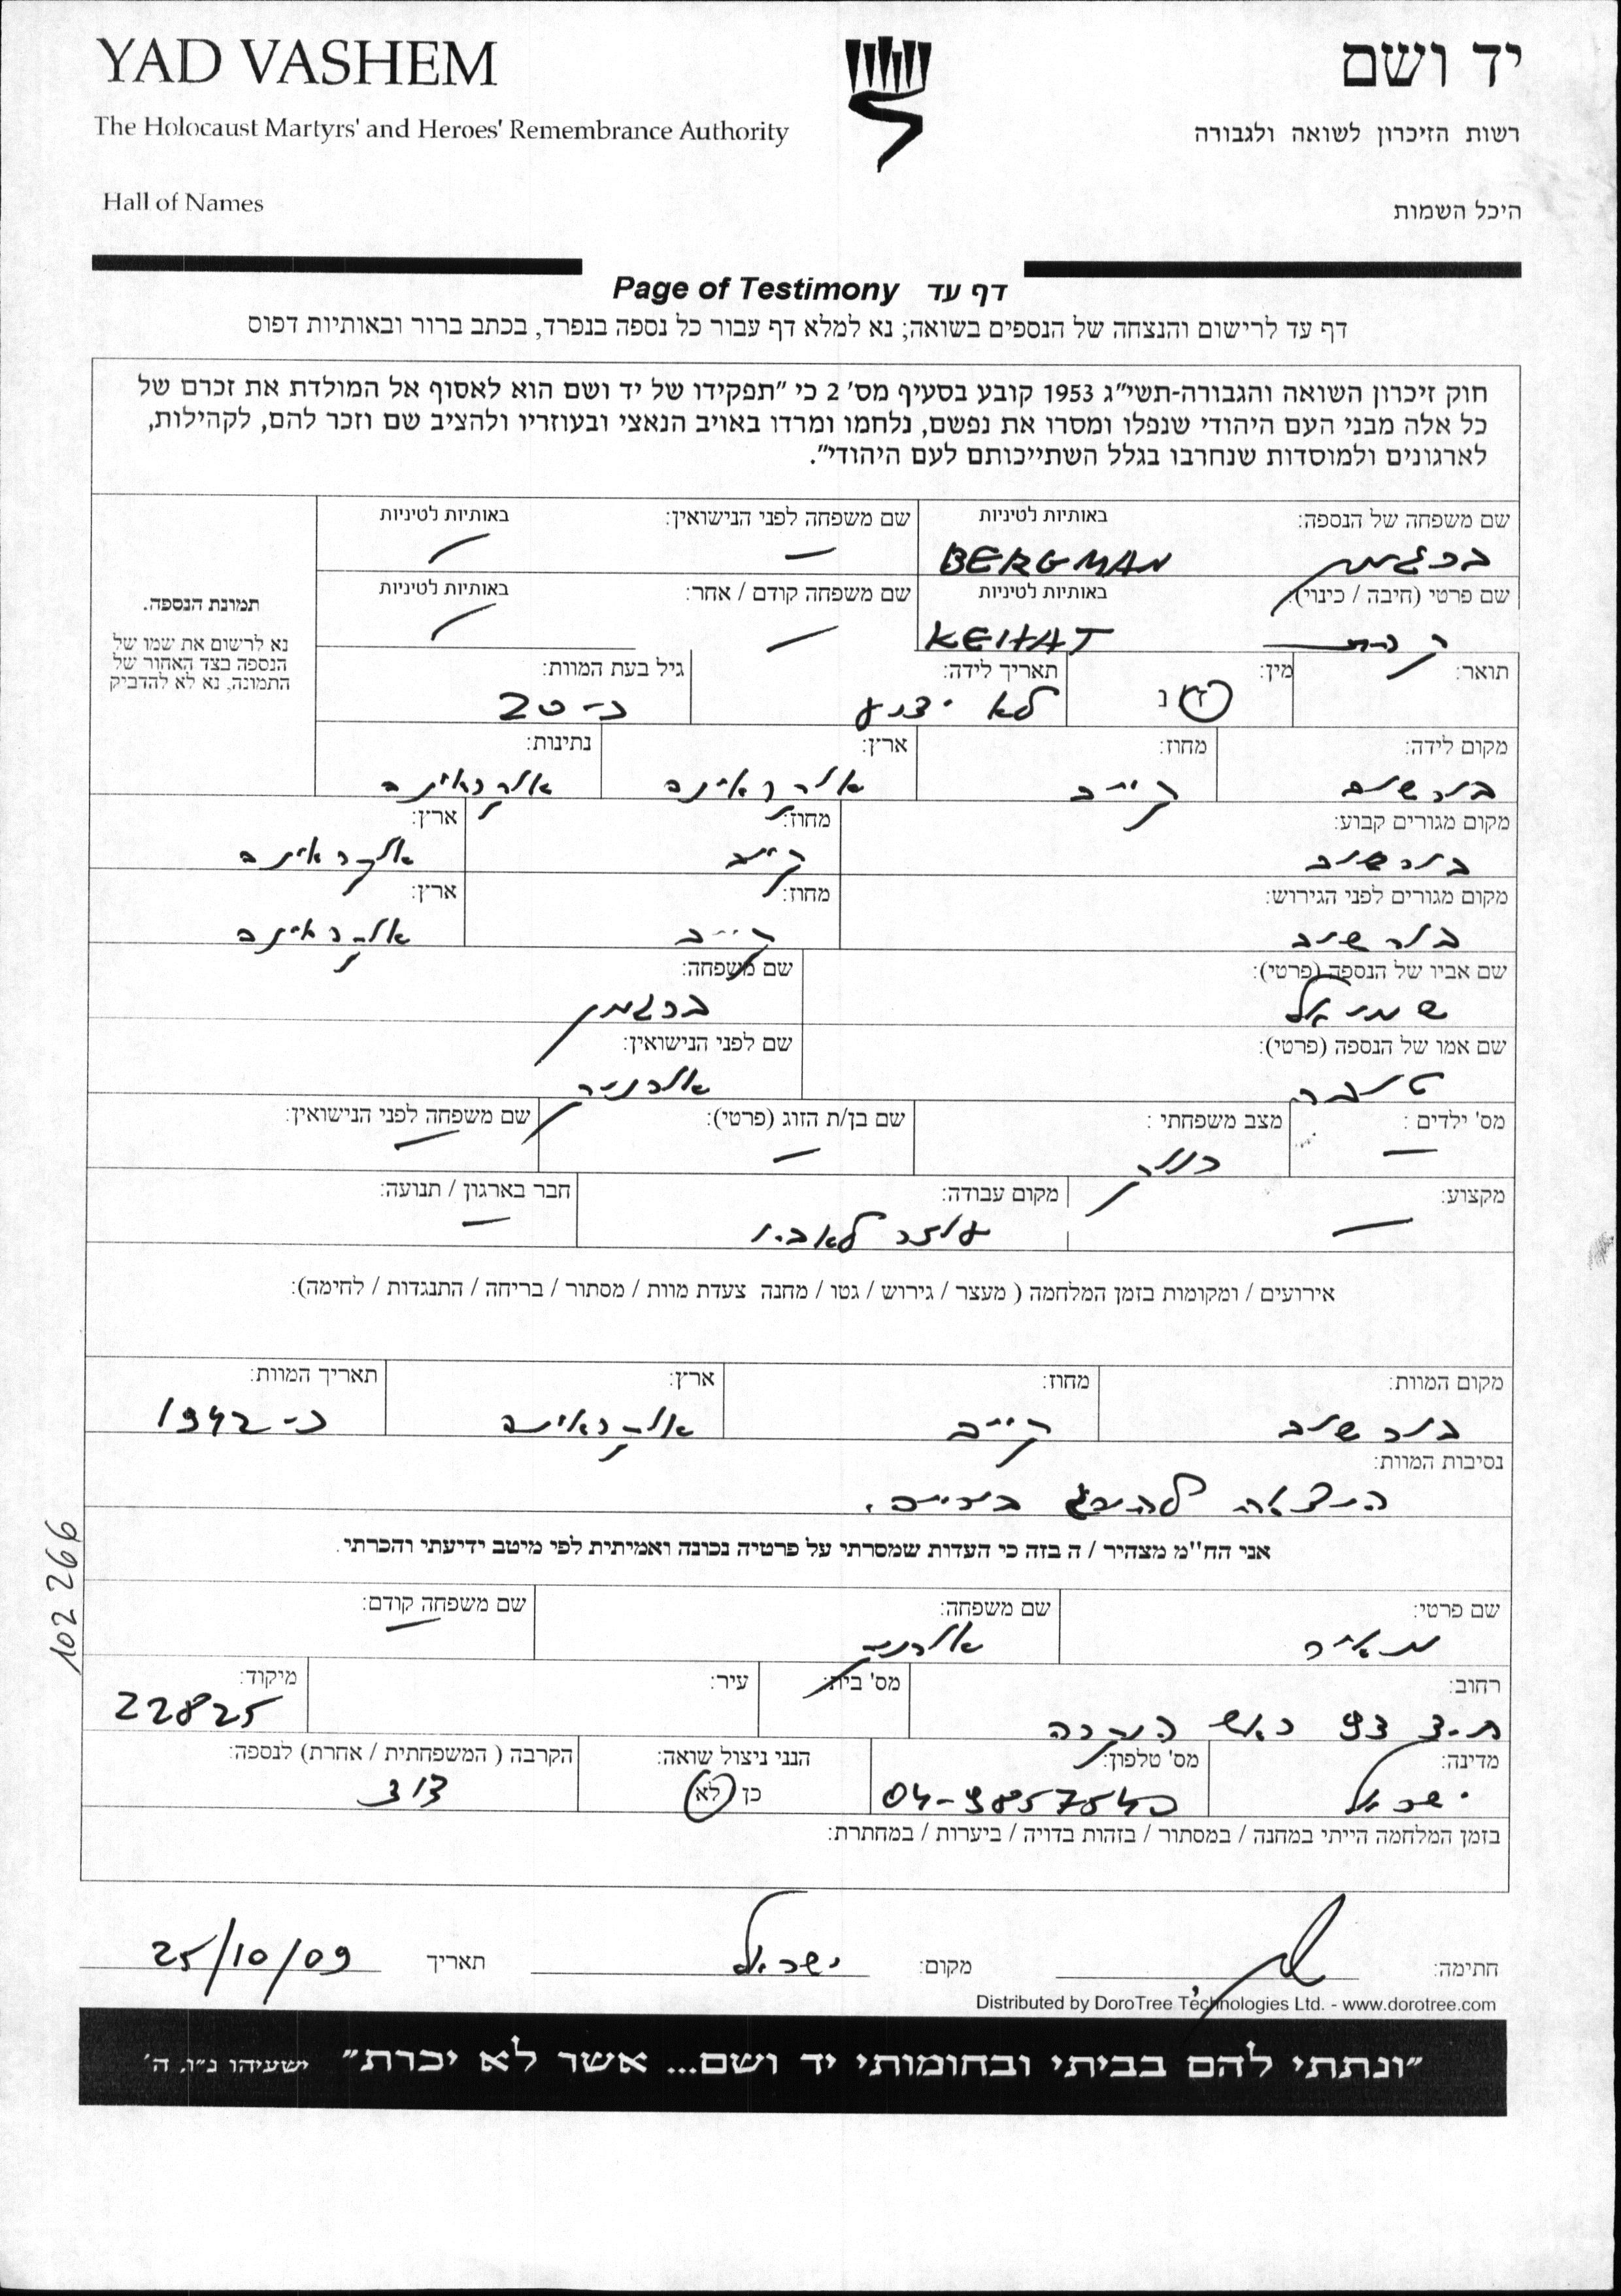 YAD VASHEM
יד ושם
The Holocaust Martyrs' and Heroes' Remembrance Authority
רשות הזיכרון לשואה ולגבורה
Hall of Names
היכל השמות
Page of Testimony דף עד
דף עד לרישום והנצחה של הנספים בשואה; נא למלא דף עבור כל נספה בנפרד, בכתב ברור ובאותיות דפוס
חוק זיכרון השואה והגבורה-תשי"ג 1953 קובע בסעיף מס' 2 כי "תפקידו של יד ושם הוא לאסוף אל המולדת את זכרם של
כל אלה מבני העם היהודי שנפלו ומסרו את נפשם, נלחמו ומרדו באויב הנאצי ובעוזריו ולהציב שם וזכר להם, לקהילות,
לארגונים ולמוסדות שנחרבו בגלל השתייכותם לעם היהודי".
שם משפחה של הנספה: באותיות לטיניות שם משפחה לפני הנישואין: באותיות לטיניות
ברגמן BERGMAN — /
שם פרטי (חיבה / כינוי): באותיות לטיניות שם משפחה קודם / אחר: באותיות לטיניות
קהת KEHAT — /
תמונת הנספה.
נא לרשום את שמו של
הנספה בצד האחור של
התמונה, נא לא להדביק
תואר: מין: תאריך לידה: גיל בעת המוות:
ז נ לא ידוע כ-20
מקום לידה: מחוז: ארץ: נתינות:
בורשוב קייב אוקראינה אוקראינה
מקום מגורים קבוע: מחוז: ארץ:
בורשוב קייב אוקראינה
מקום מגורים לפני הגירוש: מחוז: ארץ:
בורשוב קייב אוקראינה
שם אביו של הנספה (פרטי): שם משפחה:
שמואל ברגמן
שם אמו של הנספה (פרטי): שם לפני הנישואין:
טובה
מס' ילדים : מצב משפחתי : שם בן/ת הזוג (פרטי): שם משפחה לפני הנישואין:
— רווק — —
מקצוע: מקום עבודה: חבר בארגון / תנועה:
— עוזר לאביו —
אירועים / ומקומות בזמן המלחמה ( מעצר / גירוש / גטו / מחנה צעדת מוות / מסתור / בריחה / התנגדות / לחימה):
מקום המוות: מחוז: ארץ: תאריך המוות:
בורשוב קייב אוקראינה כ-1942
נסיבות המוות:
הוצאה להורג בירייה.
אני הח"מ מצהיר / ה בזה כי העדות שמסרתי על פרטיה נכונה ואמיתית לפי מיטב ידיעתי והכרתי.
102266
שם פרטי: שם משפחה: שם משפחה קודם:
מאיר —
רחוב: מס' בית: עיר: מיקוד:
ת.ד 93 ראש הנקרה 22825
מדינה: מס' טלפון: הנני ניצול שואה: הקרבה ( המשפחתית / אחרת) לנספה:
ישראל 04-9857540 כן / לא דוד
בזמן המלחמה הייתי במחנה / במסתור / בזהות בדויה / ביערות / במחתרת:
חתימה: מקום: ישראל תאריך 25/10/09
Distributed by DoroTree Technologies Ltd. - www.dorotree.com
"ונתתי להם בביתי ובחומותי יד ושם... אשר לא יכרת" ישעיהו נ"ו, ה'